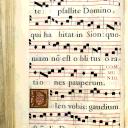 te: psallite Domino,
qui ha bitat in Sion: quo-
niam nō est o bli tus o ra
tio nes pauperum.
len vobis: gaudium